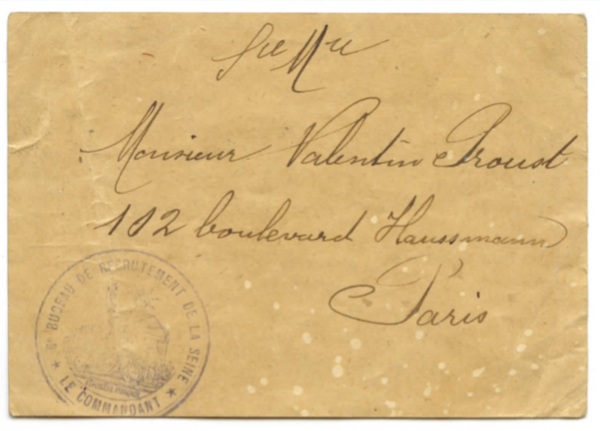 Sce Mre
Monsieur Valentin Proust
102 boulevard Haussmann
Paris
6e BUREAU DE RECRUTEMENT DE LA SEINE
★ LE COMMANDANT ★